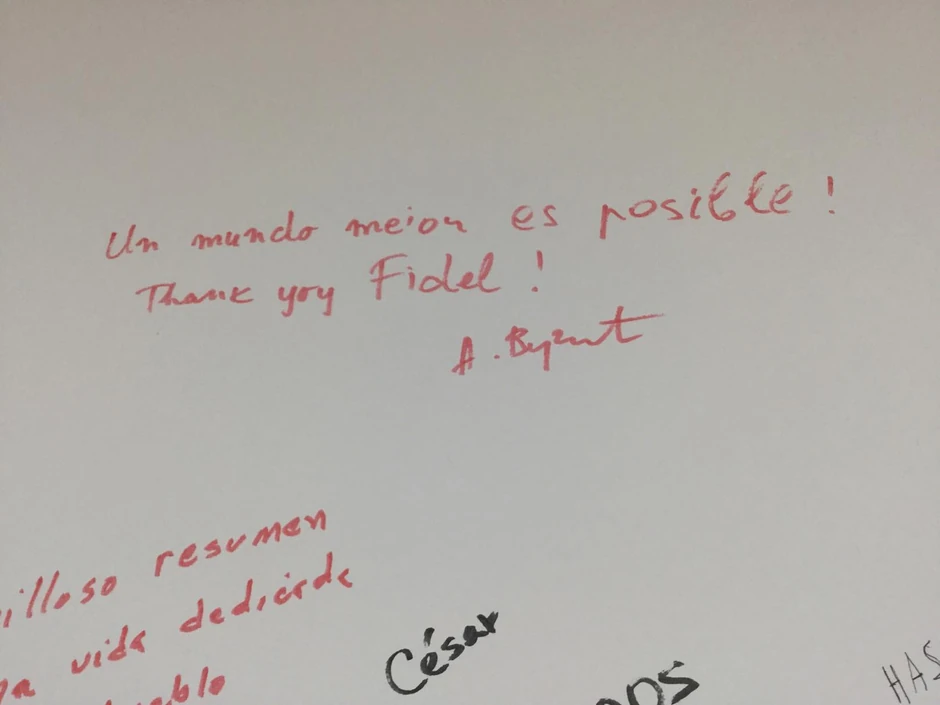 Un mundo mejor es posible!
Thank yoy Fidel!
A.
illoso resumen
vida dedicada
César
HAS